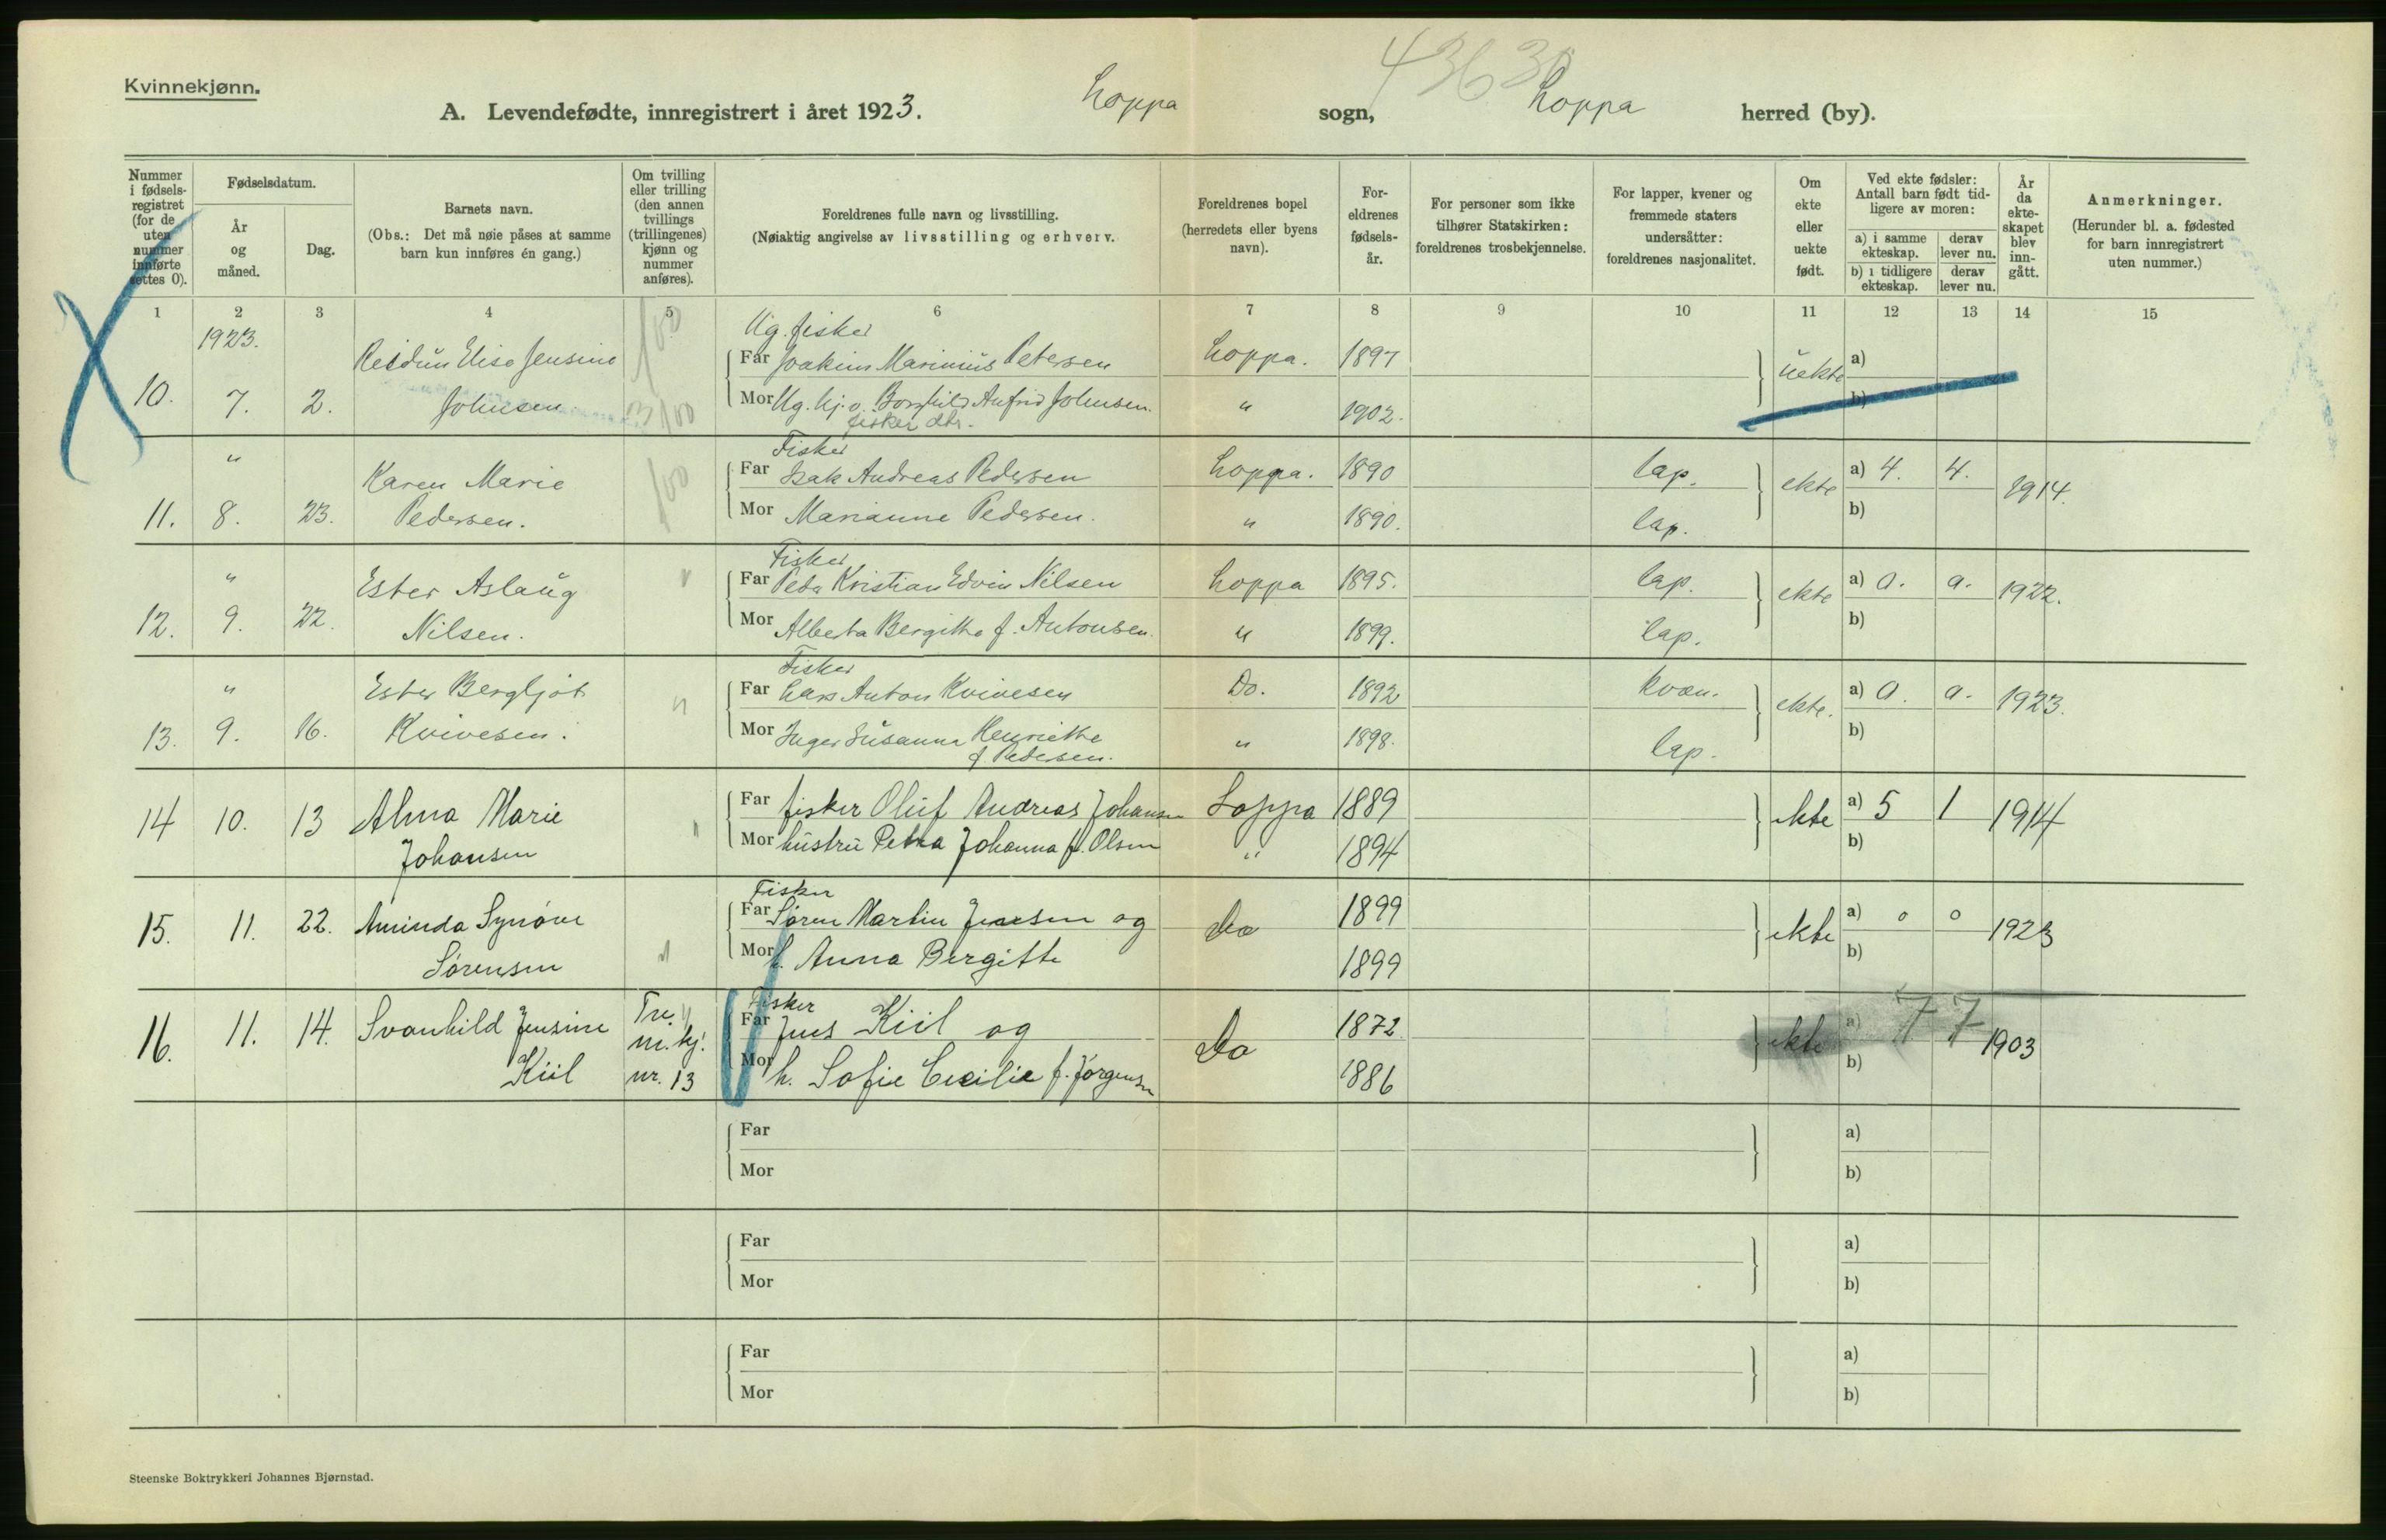 43630
Kvinnekjønn.
A. Levendefødte, innregistrert i året 1923. Loppa sogn, Loppa herred (by).
Nummer i fødsels-registret (for de uten nummer innførte settes 0).
Fødselsdatum.
År og måned.
Dag.
Barnets navn.
(Obs.: Det må nøie påses at samme barn kun innføres én gang.)
Om tvilling eller trilling (den annen tvillings (trillingenes) kjønn og nummer anføres).
Foreldrenes fulle navn og livsstilling.
(Nøiaktig angivelse av livsstilling og erhverv.
Foreldrenes bopel (herredets eller byens navn).
For-eldrenes fødsels-år.
For personer som ikke tilhører Statskirken: foreldrenes trosbekjennelse.
For lapper, kvener og fremmede staters undersåtter: foreldrenes nasjonalitet.
Om ekte eller uekte født.
Ved ekte fødsler: Antall barn født tid-ligere av moren:
a) i samme ekteskap.
derav lever nu.
b) i tidligere ekteskap.
derav lever nu.
År da ekte-skapet blev inn-gått.
Anmerkninger.
(Herunder bl. a. fødested for barn innregistrert uten nummer.)
1 2 3 4 5 6 7 8 9 10 11 12 13 14 15
1923. Ug. fisker
Reidun Elise Jensine Far Joakim Marinius Petersen Loppa. 1897 uekte a)
10. 7. 2. Johnsen Mor Ug. hj. v. Borghild Anfrid Johnsen. " 1902. b)
fisker dtr.
" Fisker
Karen Marie Far Isak Andreas Pedersen Loppa. 1890 lap. ekte a) 4. 4. 1914.
11. 8. 23. Pedersen. Mor Marianne Pedersen. " 1890. lap. b)
" Fisker
Ester Aslaug Far Peder Kristian Edvin Nilsen Loppa 1895. lap. ekte a) 0. 0. 1922.
12. 9. 22. Nilsen. Mor Alberta Bergitha f. Antonsen. " 1899. lap. b)
" Fisker
Ester Bergljot Far Lars Anton Kvivesen Do. 1892 kvæn. ekte. a) 0. 0. 1923.
13. 9. 16. Kvivesen. Mor Inger Susanna Henriette " 1898. lap. b)
f. Pedersen.
14 10. 13 Alma Marie Far fisker Oluf Andreas Johansen Loppa 1889 ekte a) 5 1 1914
Johansen Mor hustru Petra Johanna f. Olsen " 1894 b)
Fisker
15. 11. 22. Aminda Synøve Far Søren Martin Jensen og Do 1899 ekte a) 0 0 1923
Sørensen Mor h. Anna Bergitte 1899 b)
Fisker
16. 11. 14. Svanhild Jensine Tv. Far Jens Kiil og Do 1872 ekte a) 7 7 1903
m. kj.
Kiil nr. 13 Mor h. Sofie Cecilie f. Jørgensen 1886 b)
Far a)
Mor b)
Far a)
Mor b)
Far a)
Mor b)
Steenske Boktrykkeri Johannes Bjørnstad.